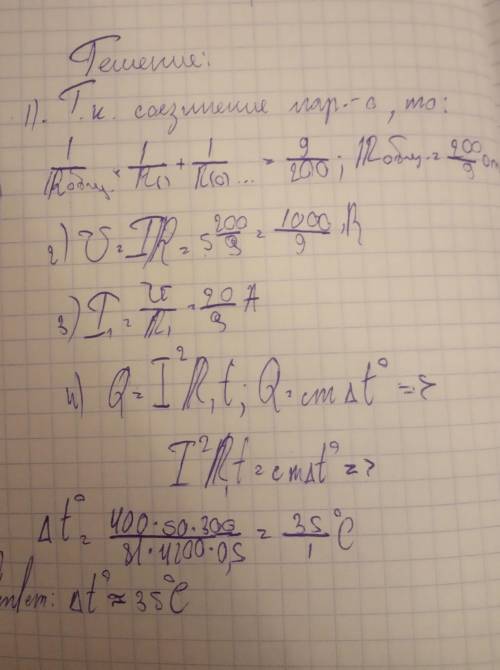 Решение:
1). Т.к. соединение пар.-о, то:
1/Rобщ. = 1/R(1) + 1/R(2)... = 9/200; Rобщ.= 200/9 Ом
2) U = IR = 5 200/9 = 1000/9, В
3) I₁ = U/R₁ = 20/9 A
4) Q = I²R₁t; Q = cmΔt° =>
I²R₁t = cmΔt° =>
Δt° = 400·50·300/81·4200·0,5 = 35/1 °C
Δt° ≈ 35°C